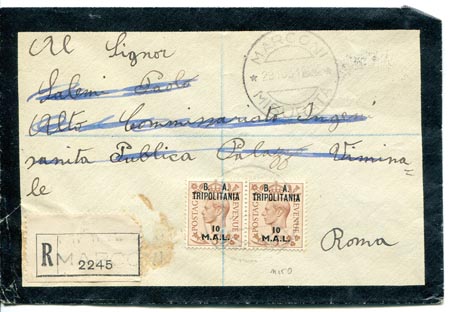 Al Signor
Salemi Paolo
Alto Commissariato Ingeni
sanita Pubblica Palazz Vimina=
le
Roma
MARCONI
MISURATA
B. A.
TRIPOLITANIA
10
M.A.L.
POSTAGE
REVENUE
B. A.
TRIPOLITANIA
10
M.A.L.
POSTAGE
REVENUE
R
2245